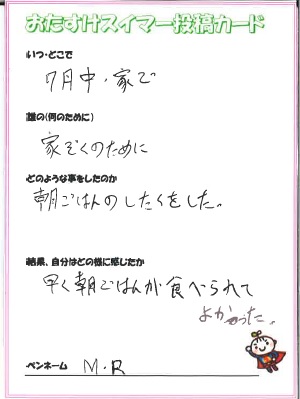 おたすけスイマー投稿カード
いつ・どこで
7月中・家で
誰の(何のために)
家ぞくのために
どのような事をしたのか
朝ごはんのしたくをした。
結果、自分はどの様に感じたか
早く朝ごはんが食べられて
よかった。
ペンネーム M.R